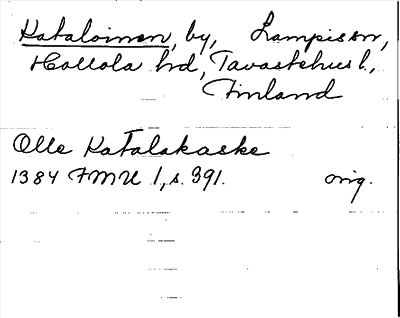 Kataloinen, by, Lampis sn,
Hollola hd, Tavastehus l.,
Finland
Olle Katalakaske
1384 FMU 1, s. 391. orig.